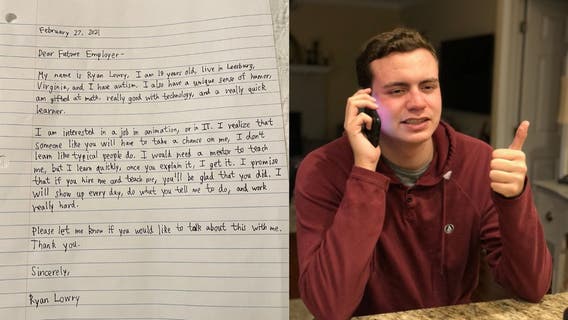 February 27, 2021
Dear Future Employer-
My name is Ryan Lowry, I am 19 years old, live in Leesburg,
Virginia, and I have autism. I also have a unique sense of humor,
am gifted at math, really good with technology, and a really quick
learner.
I am interested in a job in animation, or in IT. I realize that
someone like you will have to take a chance on me, I don't
learn like typical people do. I would need a mentor to teach
me, but I learn quickly, once you explain it, I get it. I promise
that if you hire me and teach me, you'll be glad that you did. I
will show up every day, do what you tell me to do, and work
really hard.
Please let me know if you would like to talk about this with me.
Thank you.
Sincerely,
Ryan Lowry